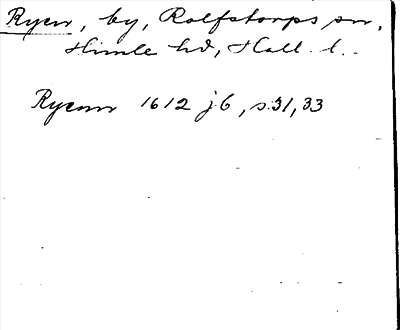 Ryen, by, Rolfstorps sn,
Himle hd, Hall. l.
Ryenn 1612 jb, s. 31, 33